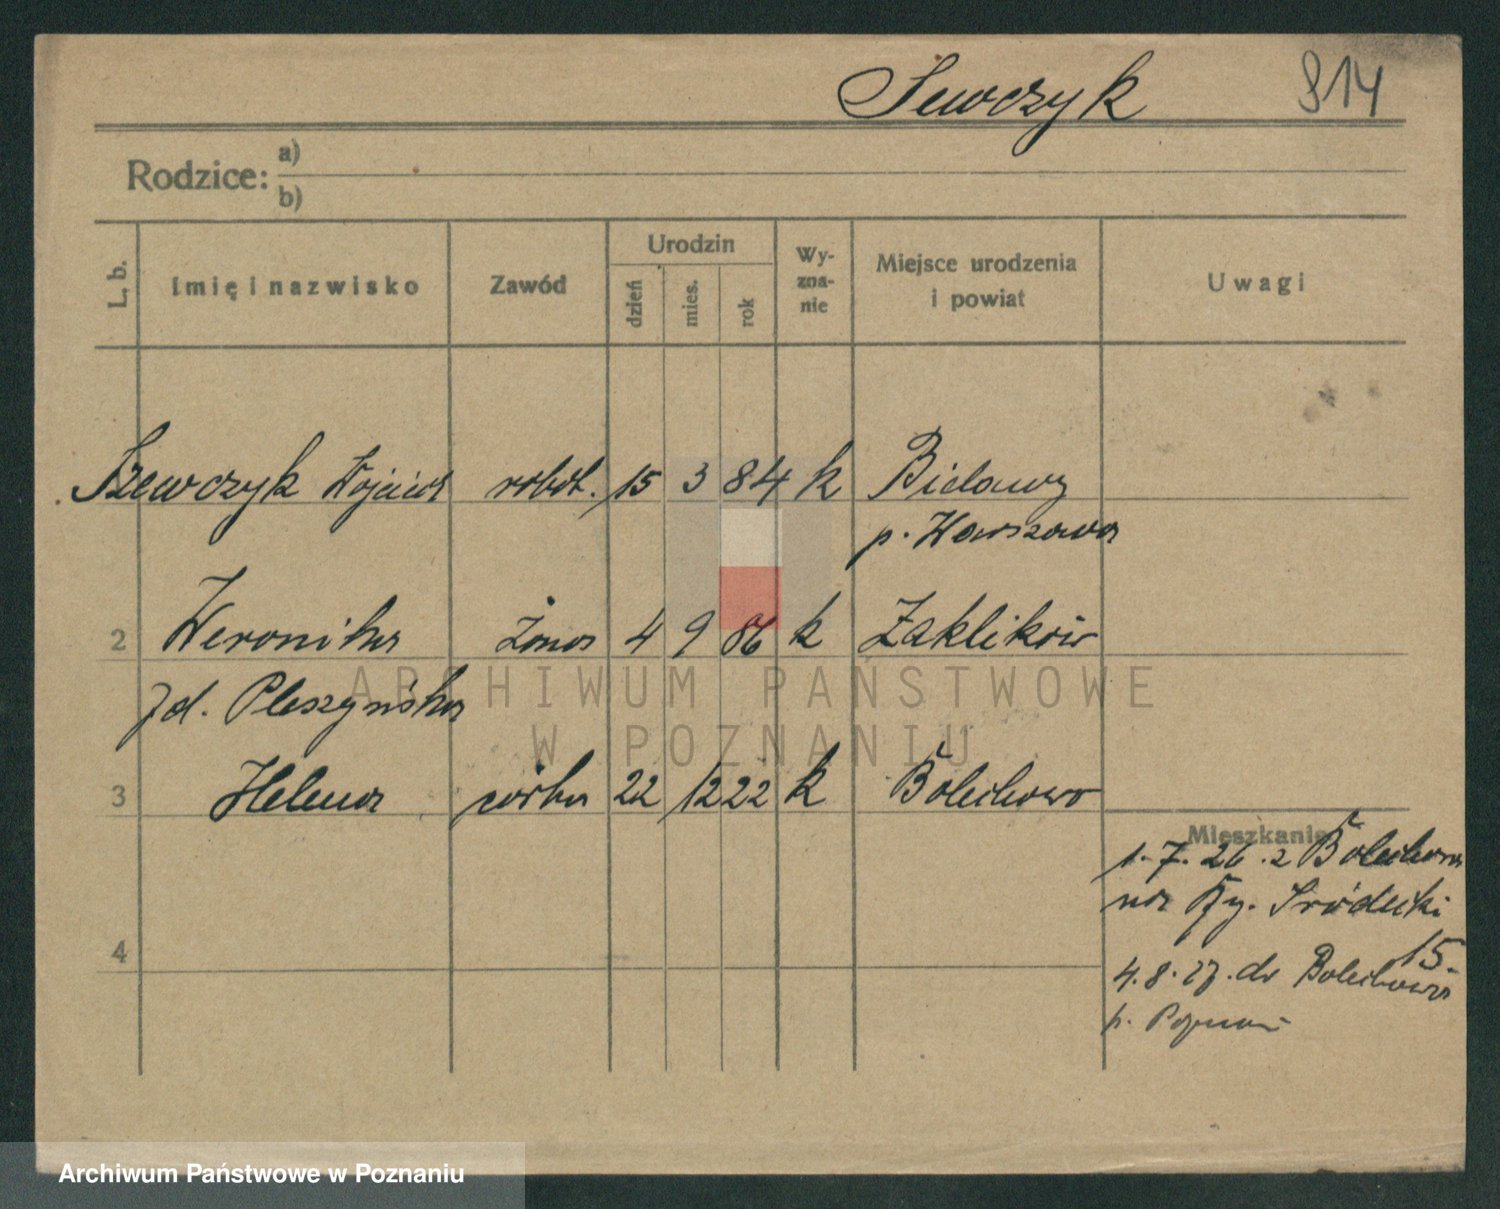 Sewczyk 814
Rodzice: a)
b)
L. b. Imię i nazwisko Zawód Urodzin Wy-
zna-
nie Miejsce urodzenia
i powiat Uwagi
dzień mies. rok
Szewczyk Wojciech robot. 15 3 84 k Bielawy
p. Warszawa
2 Weronika żona 4 9 86 k Zaklików
zd. Pleszyńska
ARCHIWUM PAŃSTWOWE
W POZNANIU
3 Helena córka 22 12 22 k Bolechowo
Mieszkanie
1.7.26. z Bolechowa
na Ry. Śródecki
15.
4
4.8.27. do Bolechowa
p. Poznań
Archiwum Państwowe w Poznaniu